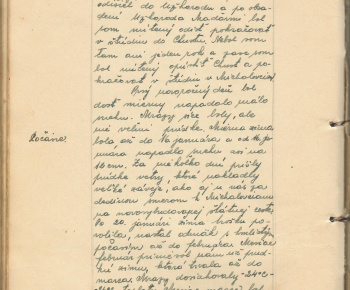 odísť do Užhorodu a po obsa-
dení Užhorodu Maďarmi bol
som nútený odísť pokračovať
v štúdiu do Chustu. Nebol som
tam ani jeden rok a zase som
bol nútený opustiť Chust a po-
kračovať v štúdiu v Michalovciach.
Nový novoročný deň bol
dosť mierny napadalo málo
snehu. Mrazy síce boly, ale
nie veľmi prudké. Mierna zima
bola až do januára a od
januára napadlo snehu asi na
16 cm. Za niekoľko dní prišly
prudké vetry, ktoré nakladly
veľké záveje, ako aj u nás za
dedinou smerom k Michalovciam
na novovybudovanej štátnej ceste.
Do 20. januára zima trošku po-
volila, nastal odmäk s
počasím až do februára. Mesiac
február priniesol nám už prud-
kú zimu, ktorá trvala až do
marca. Mrazy dosahovaly -24°C
Počasie